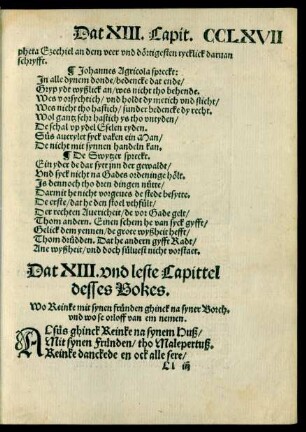 Dat XIII. Capit. CCLXVII
pheta Ezechiel an dem veer vnd dörtigesten rycklick daruan
schryfft.
¶ Johannes Agricola spreckt:
In alle dynem donde/ bedencke dat ende/
Gryp ydt wyßlick an/ wes nicht tho behende.
Wes vorsychtich/ vnd holdt dy metich vnd slicht/
Wes nicht tho hastich/ sunder bedencke dy recht.
Wol gantz seht hastich ys tho vnryden/
De schal vp ydel Eselen ryden.
Süs auerylet syck vaken ein Man/
De nicht mit synnen handeln kan.
¶ De Swytzer spreckt.
Ein yder de dar syt inn der gewaldt/
Vnd syck nicht na Gades ordeninge hölt.
Is dennoch tho dren dingen nütte/
Darmit he nicht vorgeues de stede besytte.
De erste/ dat he den stoel vthfült/
Der rechten Auericheit/ de vor Gade gelt/
Thom andern. Einen schem he van syck gyfft/
Gelick dem yennen/ de grote wyßheit hefft/
Thom drüdden. Dat he andern gyfft Radt/
Ane wyßheit/ vnd doch süluest nicht vorstaet.
Dat XIII. vnd leste Capittel
desses Bokes.
Wo Reinke mit synen fründen ghinck na syner Borch.
vnd wo se orloff van em nemen.
Alsüs ghinck Reinke na synem Huß/
Mit synen Fründen/ tho Malepertuß.
Reinke danckede en ock alle sere/
Ll iij